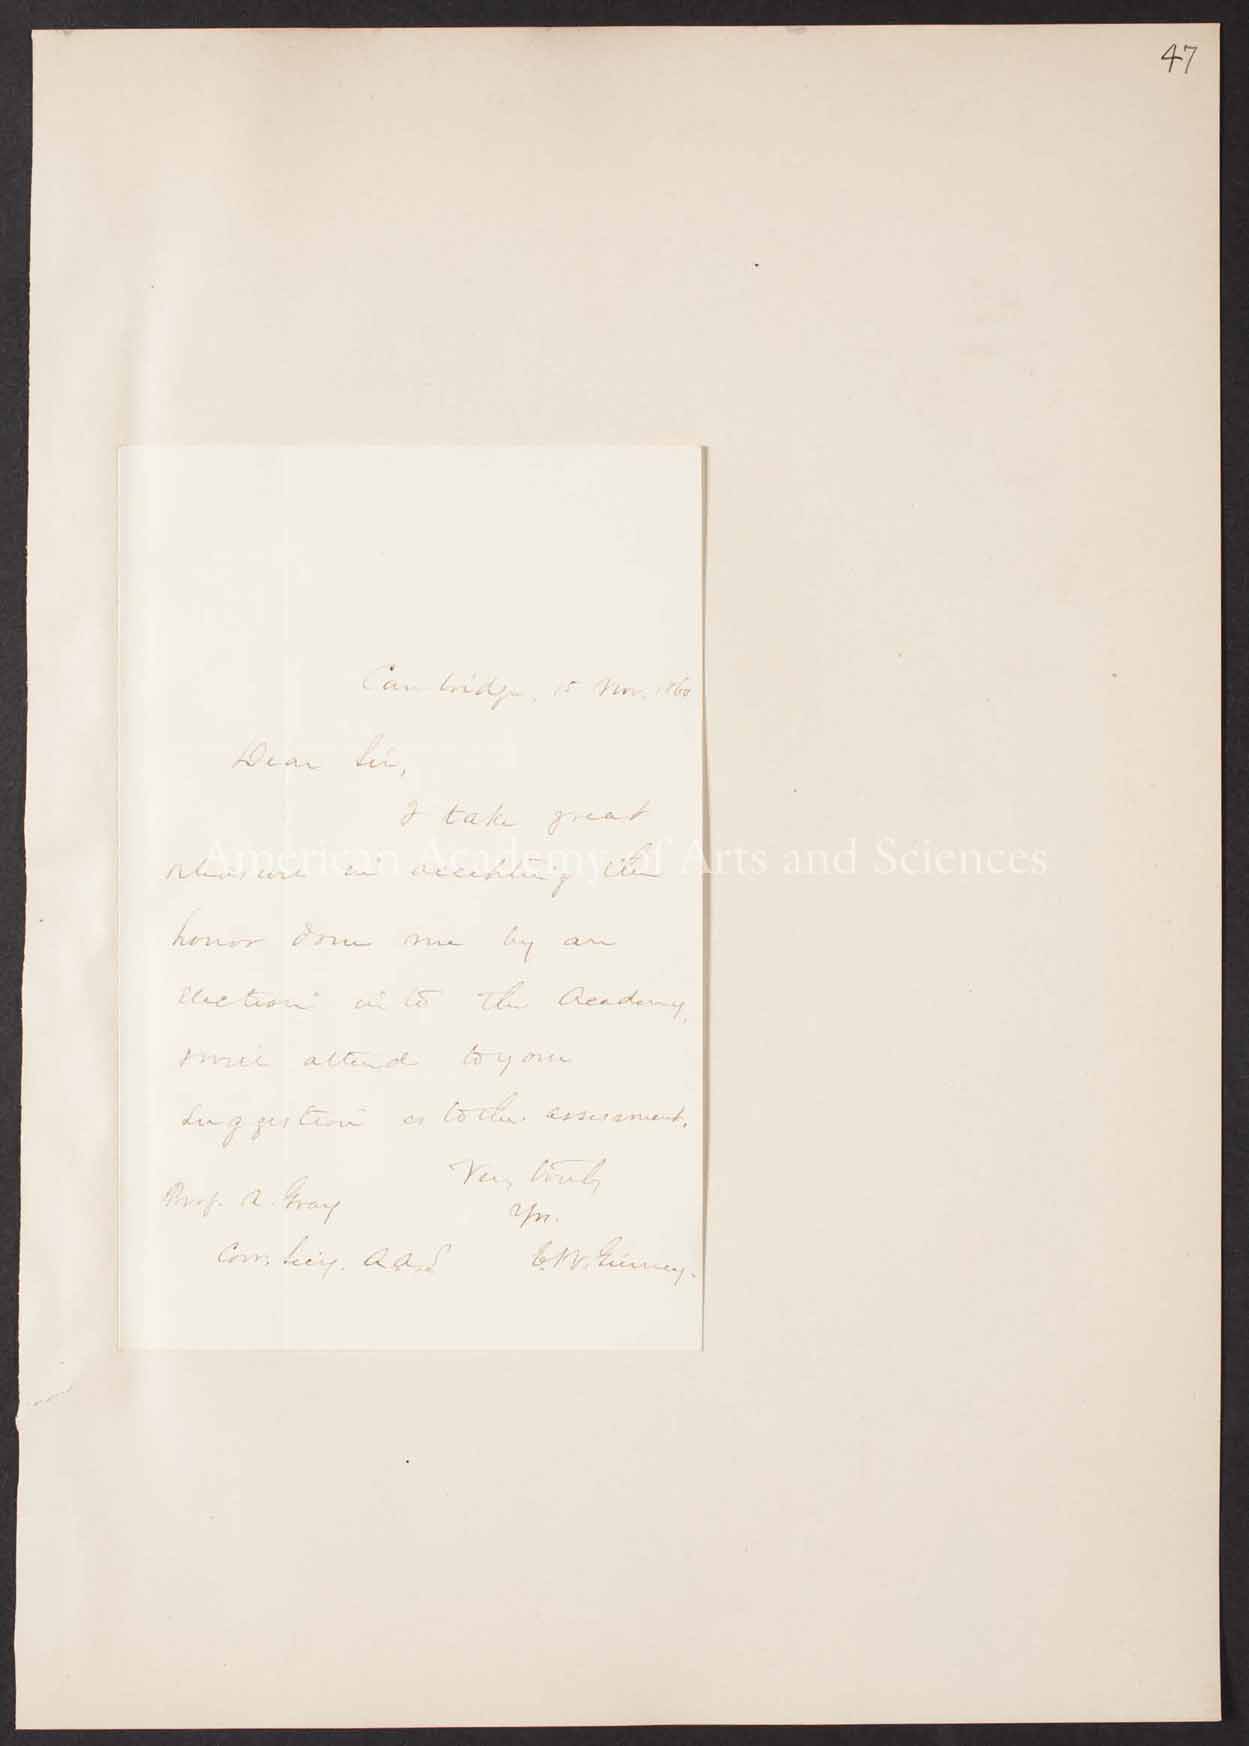 47
Cambridge, 15 Nov. 1860
Dear Sir,
I take great
pleasure in accepting the
honor done me by an
election into the Academy,
& will attend to your
suggestion as to the assessment.
Very truly
Yrs.
Prof. A. Gray
Corr. Secy. A.A.S
E. W. Gurney.
American Academy of Arts and Sciences